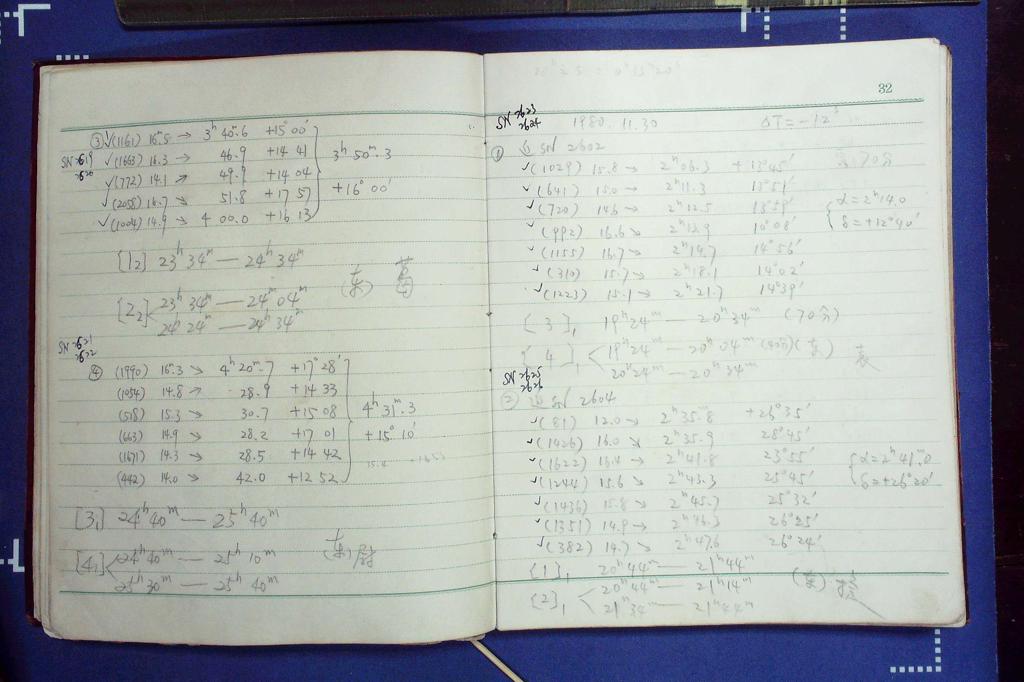 ③ ✓(1161) 16.5 → 3ʰ 40ᵐ.6 +15°00′
SN 2619
2620
✓(1663) 16.3 → 46.9 +14 41
✓(772) 14.1 → 49.9 +14 04
✓(2058) 16.7 → 51.8 +17 57
✓(1004) 14.9 → 4 00.0 +16 13
3ʰ 50ᵐ.3
+16°00′
[1₂] 23ʰ34ᵐ — 24ʰ34ᵐ
[2₂] 23ʰ34ᵐ — 24ʰ04ᵐ
24ʰ24ᵐ — 24ʰ34ᵐ
SN 2621
2622
④ (1990) 16.3 → 4ʰ20ᵐ.7 +17°28′
(1054) 14.8 → 28.9 +14 33
(518) 15.3 → 30.7 +15 08
(663) 14.9 → 28.2 +17 01
(1671) 14.3 → 28.5 +14 42
(442) 14.0 → 42.0 +12 52
4ʰ31ᵐ.3
+15°10′
[3₁] 24ʰ40ᵐ — 25ʰ40ᵐ
[4₁] 24ʰ40ᵐ — 25ʰ10ᵐ
25ʰ30ᵐ — 25ʰ40ᵐ
32
SN 2623
2624
1980. 11. 30 ΔT = -12ˢ
① SN 2602
✓(1029) 15.8 → 2ʰ06.3 +13°45′
✓(641) 15.0 → 2ʰ11.3 13°51′
✓(720) 14.6 → 2ʰ12.5 13°59′
✓(992) 16.6 → 2ʰ12.9 10°08′
✓(1155) 16.7 → 2ʰ14.7 14°56′
✓(310) 15.7 → 2ʰ18.1 14°02′
✓(1223) 15.1 → 2ʰ21.7 14°39′
α=2ʰ14.0
δ=+12°40′
[3]₁ 19ʰ24ᵐ — 20ʰ34ᵐ (70分)
[4]₁ 19ʰ24ᵐ — 20ʰ04ᵐ (40分)
20ʰ24ᵐ — 20ʰ34ᵐ
SN 2625
2626
② SN 2604
✓(81) 12.0 → 2ʰ35.8 +26°35′
✓(1426) 16.0 → 2ʰ35.9 28°45′
✓(1622) 16.4 → 2ʰ41.8 23°55′
✓(1244) 15.6 → 2ʰ43.3 25°45′
✓(1436) 15.8 → 2ʰ45.7 25°32′
✓(1351) 14.9 → 2ʰ46.3 26°25′
✓(382) 14.7 → 2ʰ47.6 26°24′
α=2ʰ41ᵐ.0
δ=+26°20′
[1]₁ 20ʰ44ᵐ — 21ʰ44ᵐ
[2]₁ 20ʰ44ᵐ — 21ʰ14ᵐ
21ʰ34ᵐ — 21ʰ44ᵐ